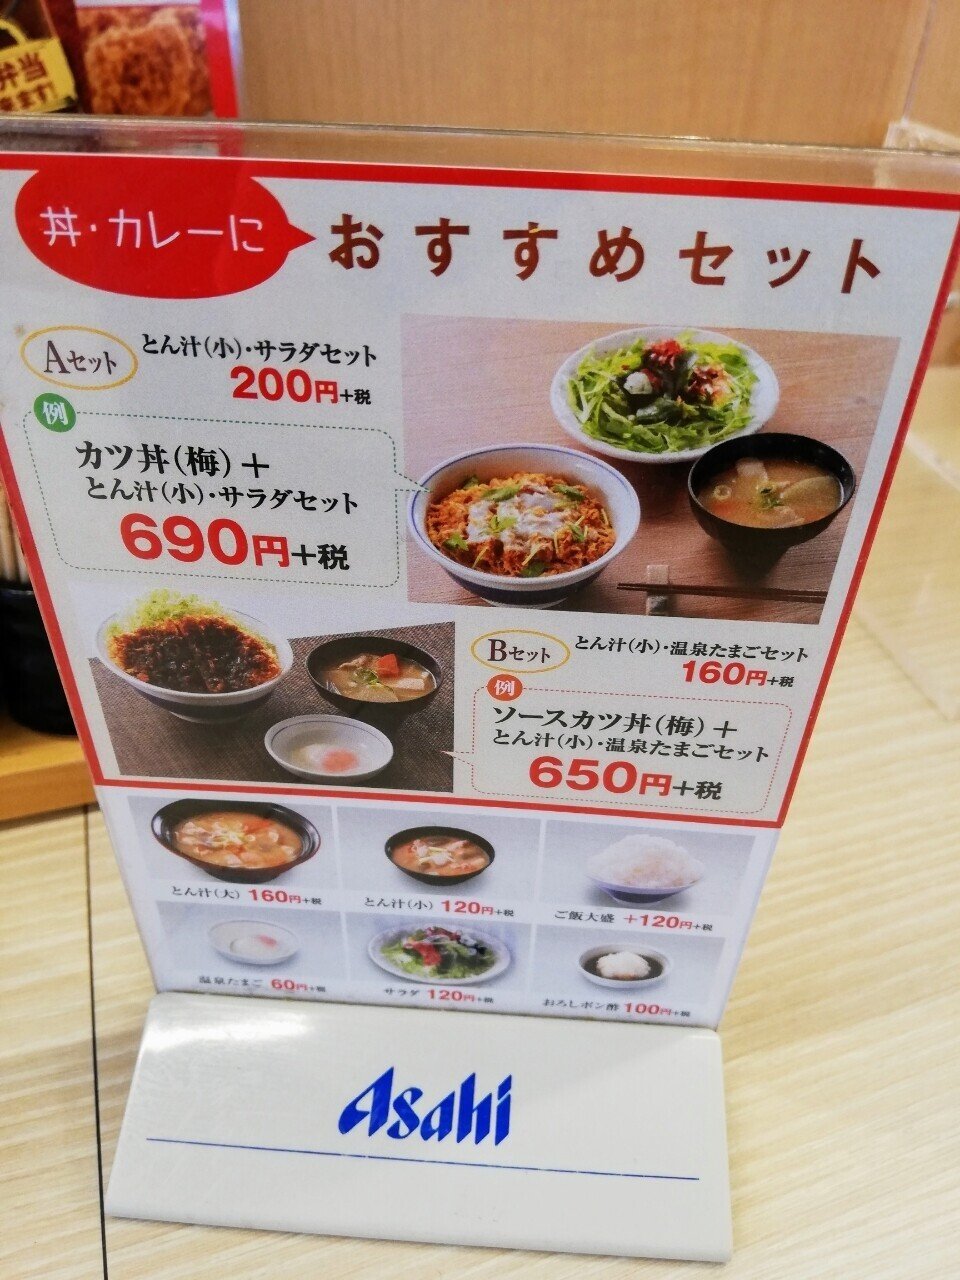 弁当
ます!
丼・カレーに
おすすめセット
Aセット
とん汁(小)・サラダセット
200円+税
例
カツ丼(梅)+
とん汁(小)・サラダセット
690円+税
Bセット
とん汁(小)・温泉たまごセット
160円+税
例
ソースカツ丼(梅)+
とん汁(小)・温泉たまごセット
650円+税
とん汁(大) 160円+税
とん汁(小) 120円+税
ご飯大盛 +120円+税
温泉たまご 60円+税
サラダ 120円+税
おろしポン酢 100円+税
Asahi